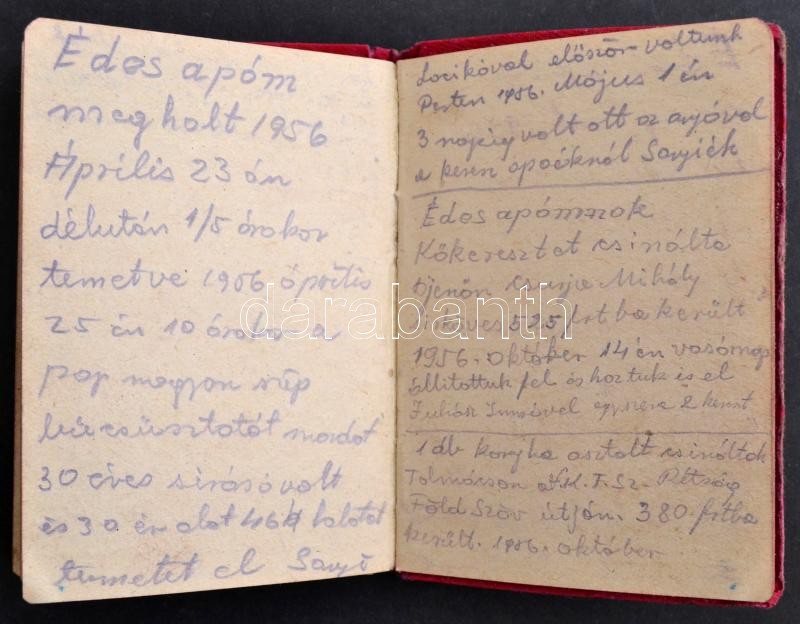 Édes apám
megholt 1956
Április 23 án
délután 1/5 órakor
temetve 1956 április
25 én 10 órakor a
pap nagyon szép
búcsúsztatót mondot
30 éves sirásó volt
és 30 év alat 464 halotat
temetet el
Locikával először voltunk
Pesten 1956. Május 1 én
3 napig volt ott az anyával
a keren apáéknál
Édes apámnak
Kőkeresztet csinálta
Mihály
kőves 525 frt ba került
1956. október 14 én vasárnap
állitottuk fel és hoztuk is el
Juhász Imrével egyszere 2 keresztet
1 db konyha asztalt csináltak
Tolmácson a K.T.Sz. Rétság
Föld Szöv útján. 380 frtba
került. 1956. október
darabanth